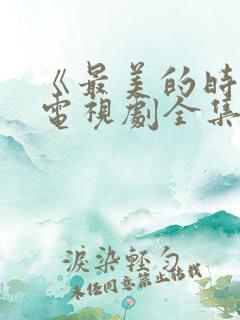 《最美的時
電視劇全集
淚染輕勻
未经同意禁止转载